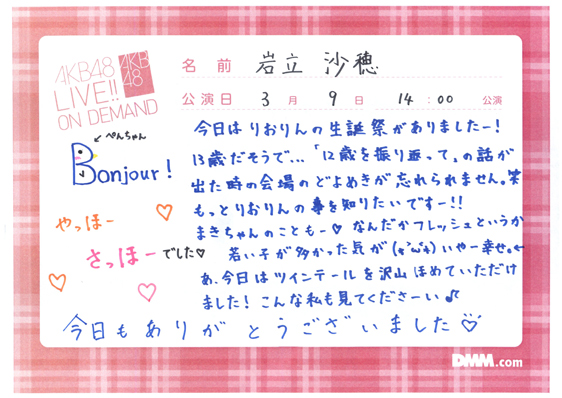 AKB48
LIVE!!
ON DEMAND
AKB
48
名前 岩立 沙穂
公演日 3月 9日 14:00 公演
ぺんちゃん
Bonjour!
やっほー
さっほーでした♡
今日はりおりんの生誕祭がありましたー!
13歳だそうで…「12歳を振り返って」の話が
出た時の会場のどよめきが忘れられません。笑
もっとりおりんの事を知りたいですー!!
まきちゃんのこともー♡ なんだかフレッシュというか
若い子が多かった気が(*'ω'*)いやー幸せ。
あ、今日はツインテールを沢山ほめていただけ
ました!こんな私も見てくださーい♪
今日もありがとうございました♡
DMM.com